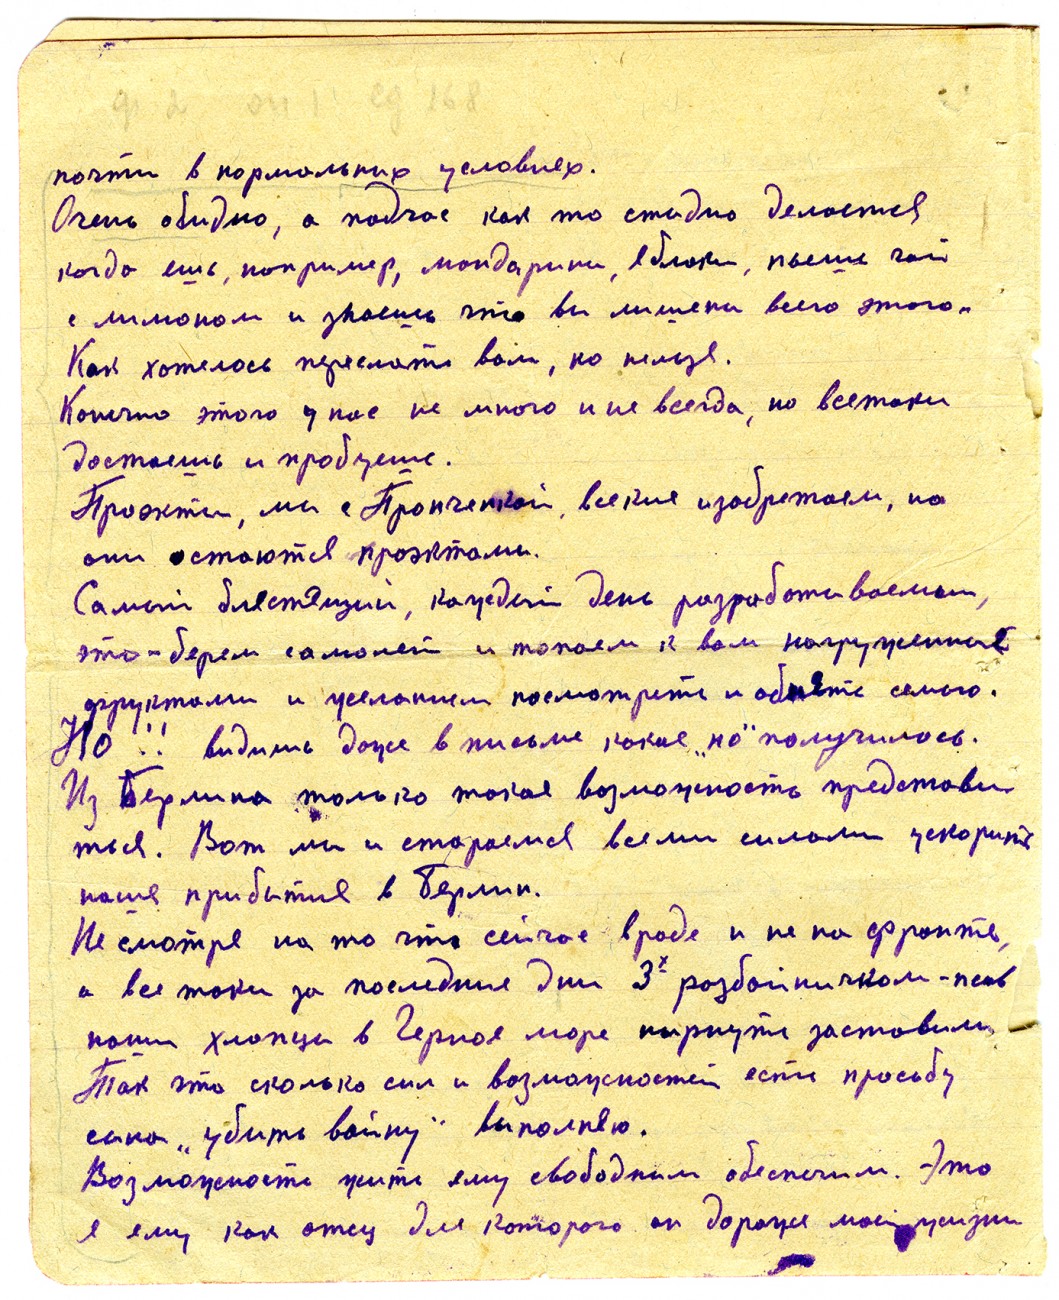 ф 2 оп 1 ед 168
почти в нормальних условиях.
Очень обидно, а подчас как то стидно делается
когда ешь, например, мандарини, яблоки, пьешь чай
с лимоном и знаешь что ви лишени всего этого.
Как хотелось переслать вам, но нельзя.
Конечно этого у нас не много и не всегда, но всетаки
достаешь и пробуешь.
Проэкти, ми с Пронченкой, всякие изобретаем, но
они остаются проэктами.
Самий блестящий, каждий день разработиваемий,
это - берем самолет и топаем к вам нагруженние
фруктами и желанием посмотреть и обнять семью.
Но!! видишь даже в письме какое „но" получилось.
Из Берлина только такая возможность представи
ться. Вот ми и стараемся всеми силами ускорить
наше прибытие в Берлин.
Не смотря на то что сейчас вроде и не на фронте,
а все таки за последние дни 3х разбойничком-псов
наши хлопци в Черное море нырнуть заставили
Так что сколько сил и возможностей есть просьбу
сина „убить войну" выполняю.
Возможность жить ему свободним обеспечим. Это
я ему как отец для которого он дороже моей жизни